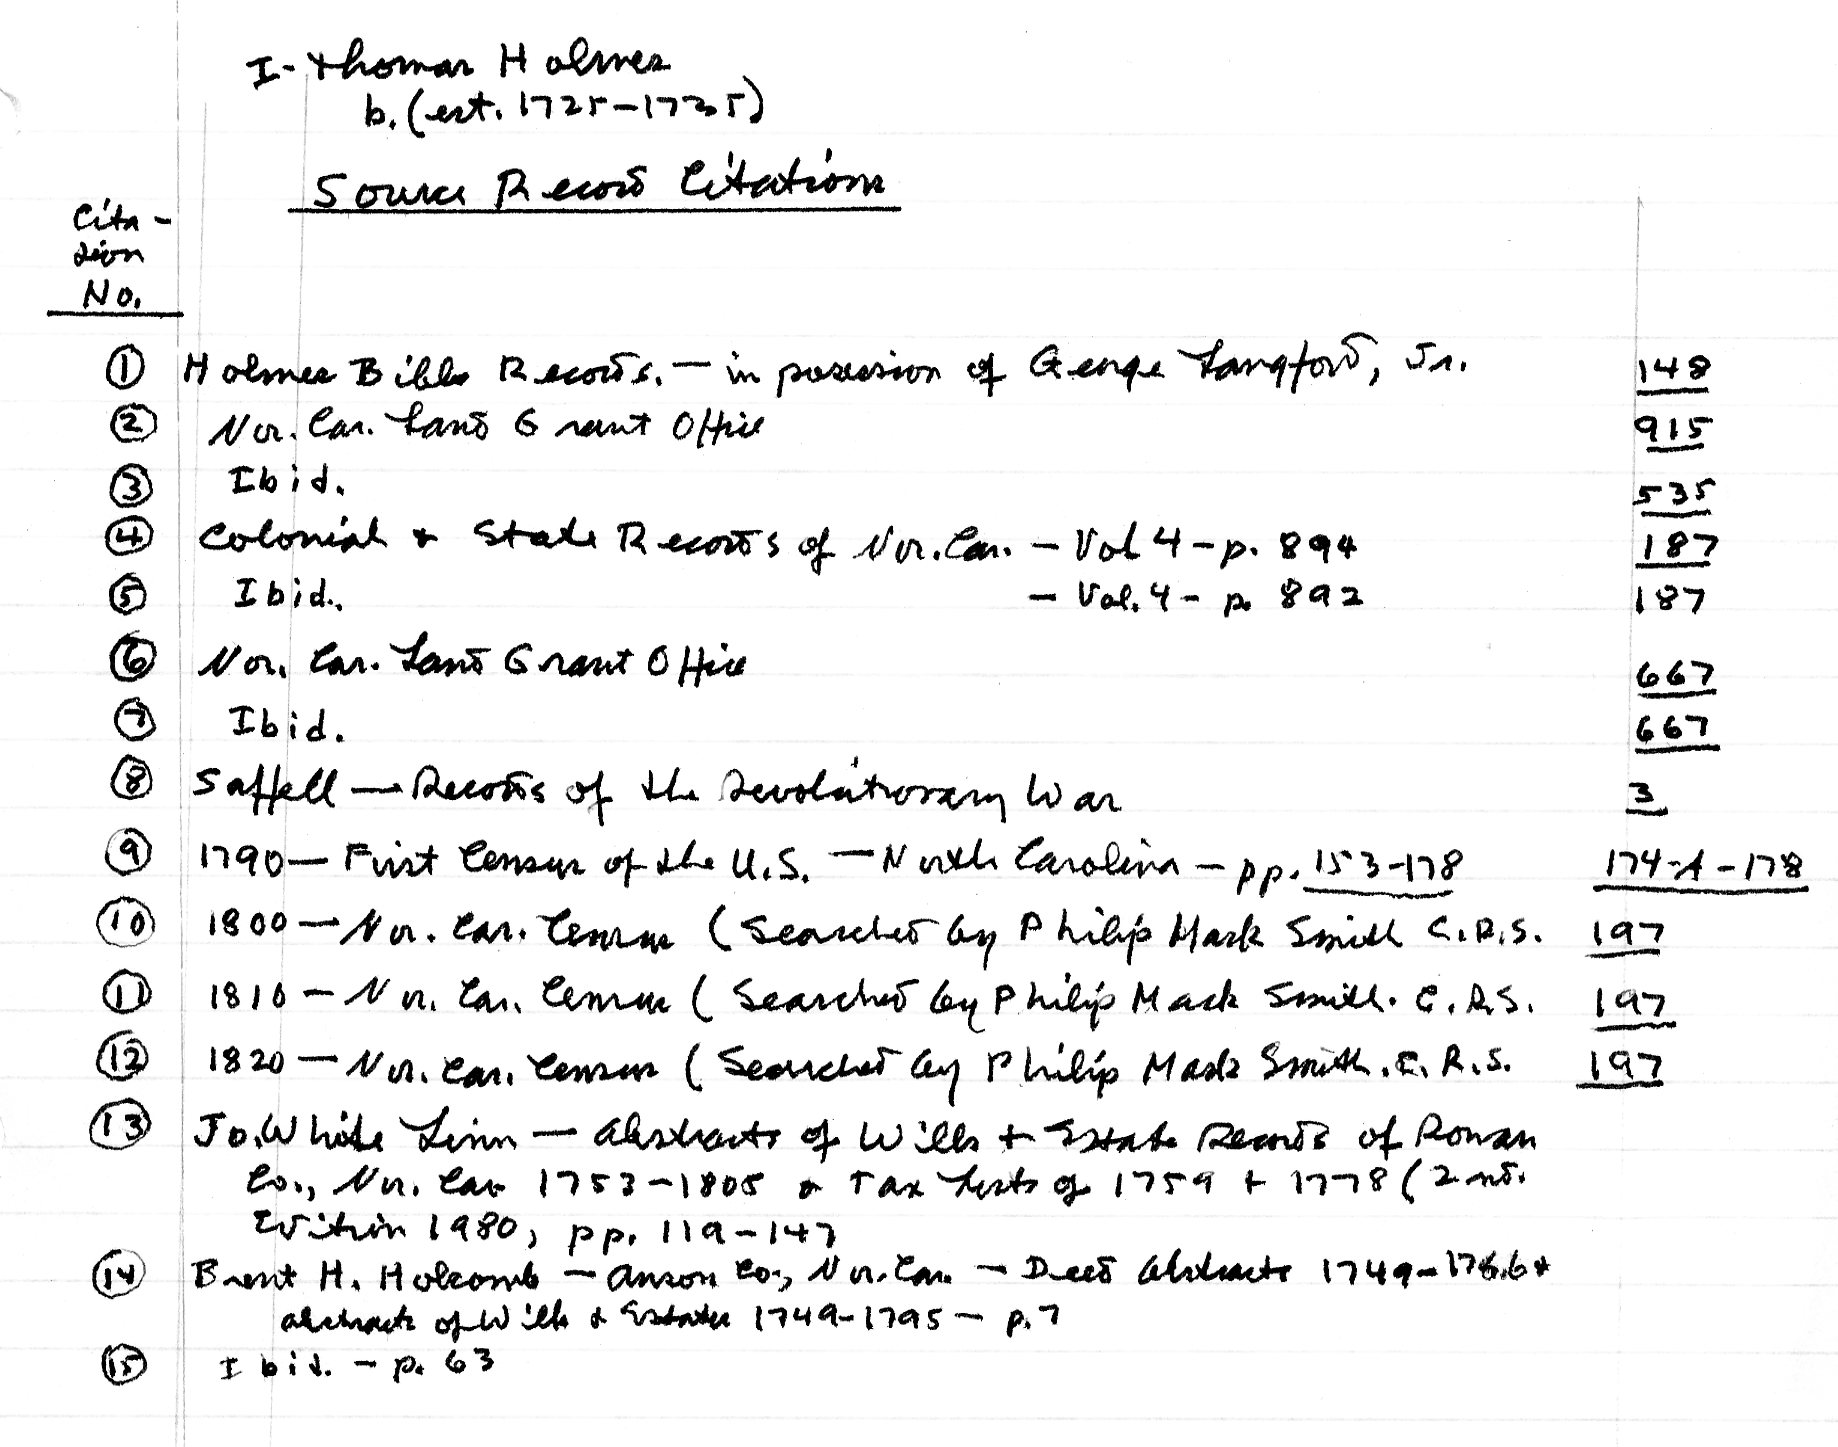 I - Thomas Holmes
b. (est. 1725-1735)
Source Record Citations
Cita-
tion
No.
① Holmes Bible Records. — in possession of George Langford, Jr. 148
② Nor. Car. Land Grant Office 915
③ Ibid. 535
④ Colonial & State Records of Nor. Car. - Vol 4 - p. 894 187
⑤ Ibid. - Vol. 4 - p. 892 187
⑥ Nor. Car. Land Grant Office 667
⑦ Ibid. 667
⑧ Saffell — Records of the Revolutionary War 3
⑨ 1790 — First Census of the U.S. — North Carolina - pp. 153-178 174-A - 178
⑩ 1800 — Nor. Car. Census (Searched by Philip Mack Smith C.R.S. 197
⑪ 1810 - Nor. Car. Census (Searched by Philip Mack Smith. C.R.S. 197
⑫ 1820 — Nor. Car. Census (Searched by Philip Mack Smith. C.R.S. 197
⑬ Jo. White Linn — Abstracts of Wills & Estate Records of Rowan
Co., Nor. Car 1753-1805 & Tax Lists of 1759 + 1778 (2nd.
Edition 1980, pp. 119-147
⑭ Brent H. Holcomb — Anson Co., Nor. Car. - Deed Abstracts 1749-1766 &
abstracts of Wills & Estates 1749-1795 - p. 7
⑮ Ibid. - p. 63